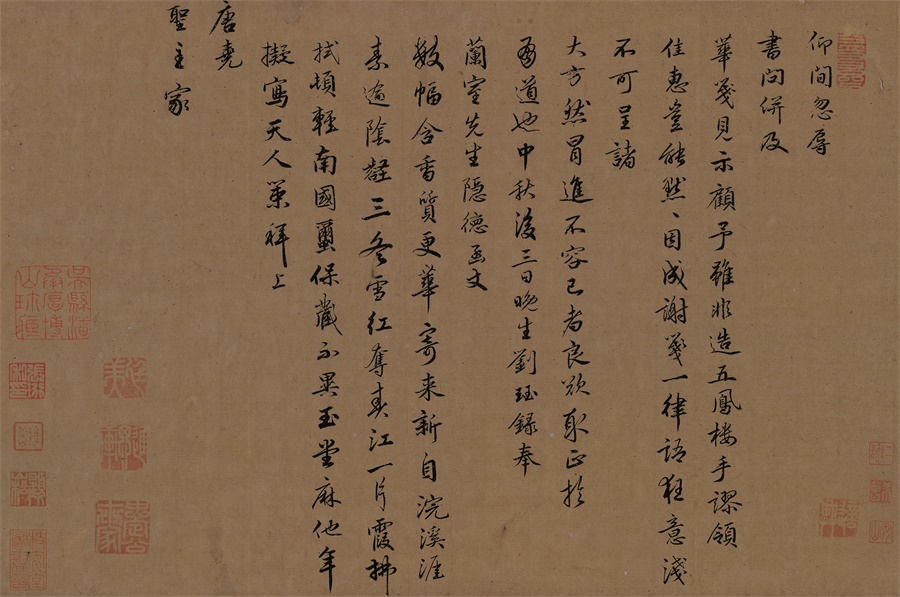 仰間忽辱
書問併及
華箋見示顧予雖非造五鳳樓手謬領
佳惠豈能默〻因成謝箋一律語狂意淺
不可呈諸
大方然冒進不容已者良欲取正於
有道也中秋後三日晚生劉珏錄奉
蘭室先生隱德函丈
數幅含香質更華寄来新自浣溪涯
素逾陰壑三冬雪紅奪春江一片霞拂
拭頓輕南國蠒保藏不異玉堂麻他年
擬寫天人策拜上
唐堯
聖主家